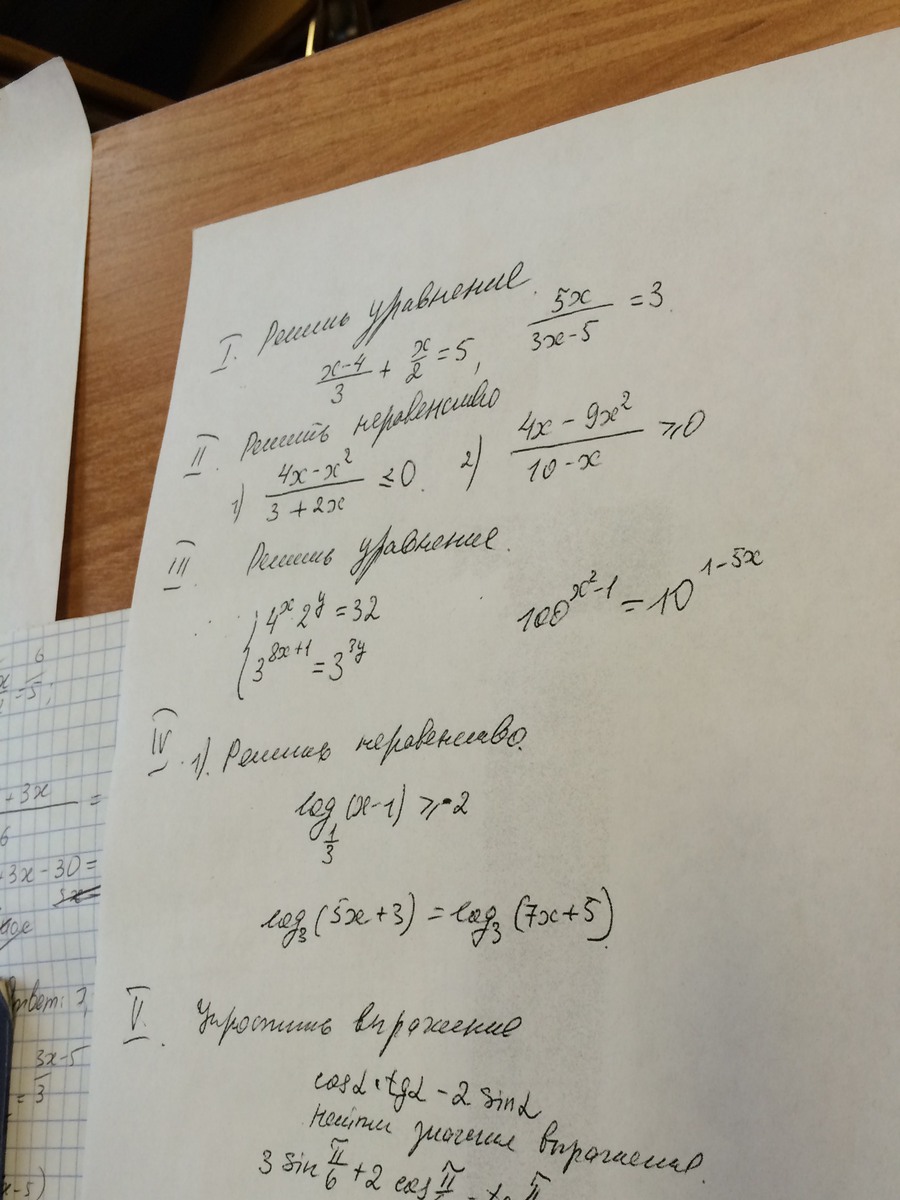 I. Решить уравнение.
(x-4)/3 + x/2 = 5, 5x/(3x-5) = 3
II. Решить неравенство
1) (4x-x²)/(3+2x) ≤ 0. 2) (4x-9x²)/(10-x) ≥ 0
III. Решить уравнение.
{ 4^x · 2^y = 32
3^(8x+1) = 3^(3y)
100^(x²-1) = 10^(1-5x)
IV. 1). Решить неравенство.
log_(1/3) (x-1) ≥ -2
log₃(5x+3) = log₃(7x+5)
V. Упростить выражение
cosα · tgα - 2 sinα
найти значение выражения.
3 sin π/6 + 2 cos π/ - tg π/
6
+3x =
6
+3x-30=
3x-5
= 3